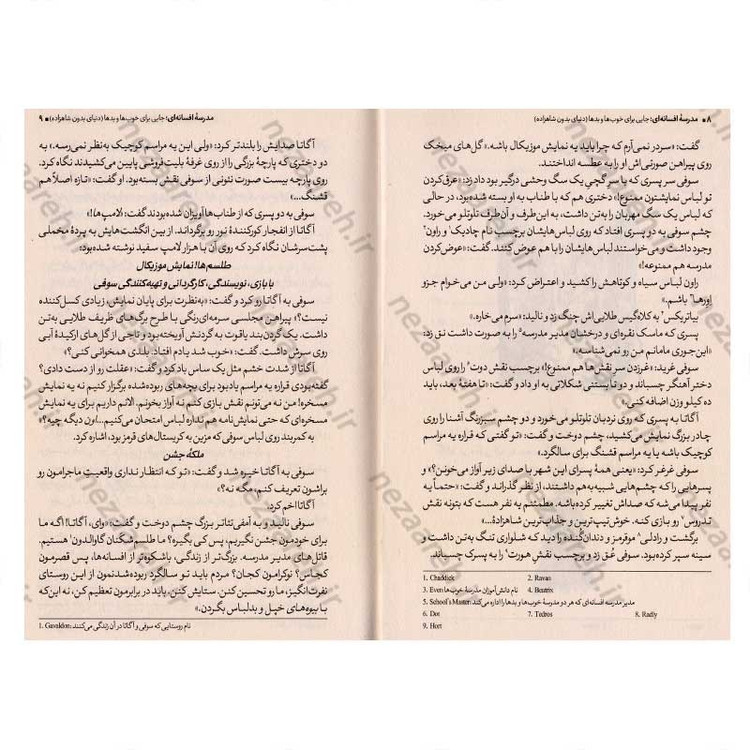 ۸ ■ مدرسهٔ افسانه‌ای: جایی برای خوب‌ها و بدها (دنیای بدون شاهزاده)
گفت: «سردر نمی‌آرم که چرا باید یه نمایش موزیکال باشه.» گل‌های میخک
روی پیراهن صورتی‌اش او را به عطسه انداختند.
سوفی سر پسری که با سرگچی یک سگ وحشی درگیر بود داد زد: «عرق‌کردن
تو لباس نمایشتون ممنوع!» دختری هم که با طناب به او بسته شده‌بود، در حالی
که لباس یک سگ مهربان را به‌تن داشت، به این‌طرف و آن‌طرف تلوتلو می‌خورد.
چشم سوفی به دو پسری افتاد که روی لباس‌هایشان برچسب نام چادیک¹ و راون²
وجود داشت و می‌خواستند لباس‌هایشان را با هم عوض کنند. گفت: «عوض‌کردن
مدرسه هم ممنوعه!»
راون لباس سیاه و کوتاهش را کشید و اعتراض کرد: «ولی من می‌خوام جزو
اِوِرها³ باشم.»
بیاتریکس⁴ به کلاه‌گیس طلایی‌اش چنگ زد و نالید: «سرم می‌خاره.»
پسری که ماسک نقره‌ای و درخشان مدیر مدرسه⁵ را به صورت داشت نق زد:
«این‌جوری مامانم من رو نمی‌شناسه.»
سوفی غرید: «غرزدن سر نقش‌ها هم ممنوع!» برچسب نقش دوت⁶ را روی لباس
دختر آهنگر چسباند و دو تا بستنی شکلاتی به او داد و گفت: «تا هفتهٔ بعد، باید
ده کیلو وزن اضافه کنی.»
آگاتا به پسری که روی نردبان تلوتلو می‌خورد و دو چشم سبزرنگ آشنا را روی
چادر بزرگ نمایش می‌کشید، چشم دوخت و گفت: «تو گفتی که قراره یه مراسم
کوچیک باشه یا یه مراسم قشنگ برای سالگرد.»
سوفی غرغر کرد: «یعنی همهٔ پسرای این شهر با صدای زیر آواز می‌خونن؟» و
پسرهایی را که چشم‌هایی شبیه به‌هم داشتند، از نظر گذراند و گفت: «حتماً یه
نفر پیدا می‌شه که صداش تغییر کرده‌باشه. مطمئنم یه نفر هست که بتونه نقش
تدروس⁷ رو بازی کنه. خوش‌تیپ‌ترین و جذاب‌ترین شاهزادهٔ...»
برگشت و رادلی⁸ موقرمز و دندان‌گنده را دید که شلواری تنگ به‌تن داشت و
سینه سپر کرده‌بود. سوفی عُق زد و برچسب نقش هورت⁹ را به پسرک چسباند.
1. Chaddick 2. Ravan
3. Even نام دانش‌آموزان مدرسهٔ خوب‌ها 4. Beatrix
5. School's Master: مدیر مدرسه افسانه‌ای که هر دو مدرسهٔ خوب‌ها و بدها را اداره می‌کند
6. Dot 7. Tedros 8. Radly
9. Hort
مدرسهٔ افسانه‌ای: جایی برای خوب‌ها و بدها (دنیای بدون شاهزاده) ■ ۹
آگاتا صدایش را بلندتر کرد: «ولی این یه مراسم کوچیک به‌نظر نمی‌رسه.» به
دو دختری که پارچهٔ بزرگی را از روی غرفهٔ بلیت‌فروشی پایین می‌کشیدند نگاه کرد.
روی پارچه بیست صورت نئونی از سوفی نقش بسته‌بود. او گفت: «تازه اصلاً هم
قشنگ...»
سوفی به دو پسری که از طناب‌ها آویزان شده‌بودند گفت: «لامپ‌ها!»
آگاتا از انفجار کورکنندهٔ نور رو برگرداند. از بین انگشت‌هایش به پردهٔ مخملی
پشت‌سرشان نگاه کرد که روی آن با هزار لامپ سفید نوشته شده‌بود:
طلسم‌ها! نمایش موزیکال
با بازی، نویسندگی، کارگردانی و تهیه‌کنندگی سوفی
سوفی به آگاتا رو کرد و گفت: «به‌نظرت برای پایان نمایش، زیادی کسل‌کننده
نیست؟» پیراهن مجلسی سرمه‌ای‌رنگی با طرح برگ‌های ظریف طلایی به‌تن
داشت. یک گردن‌بند یاقوت به گردنش آویخته‌بود و تاجی از گل‌های ارکیدهٔ آبی
روی سرش داشت. گفت: «خوب شد یادم افتاد. بلدی همخوانی کنی؟»
آگاتا از شدت خشم مثل یک ساس باد کرد و گفت: «عقلت رو از دست دادی؟
گفته‌بودی قراره یه مراسم یادبود برای بچه‌های ربوده‌شده برگزار کنیم نه یه نمایش
مسخره! من نه می‌تونم نقش بازی کنم نه آواز بخونم. الانم داریم برای یه نمایش
مسخره‌ای که حتی نمایش‌نامه هم نداره لباس امتحان می‌کنیم... اون دیگه چیه؟»
به کمربند روی لباس سوفی که مزین به کریستال‌های قرمز بود، اشاره کرد.
ملکهٔ جشن
سوفی به آگاتا خیره شد و گفت: «تو که انتظار نداری واقعیتِ ماجرامون رو
براشون تعریف کنم، مگه نه؟»
آگاتا اخم کرد.
سوفی نالید و به آمفی‌تئاتر بزرگ چشم دوخت و گفت: «وای، آگاتا! اگه ما
خودمون رو تحسین نکنیم، پس کی بگیره؟ ما طلسم‌شکنان گاوالدون¹ هستیم.
قاتل‌های مدیر مدرسه. بزرگ‌تر از زندگی، باشکوه‌تر از افسانه‌ها، پس قصرمون
کجاس؟ نوکرامون کجان؟ مردم باید تو سالگرد ربوده‌شدنمون از این روستای
نفرت‌انگیز، ما رو تحسین کنن. ستایش کنن. باید در برابرمون تعظیم کنن، نه این‌که
با بیوه‌های خپل و بدلباس بگردن.»
1. Gavaldon: نام روستایی که سوفی و آگاتا در آن زندگی می‌کنند
nezaareh.ir